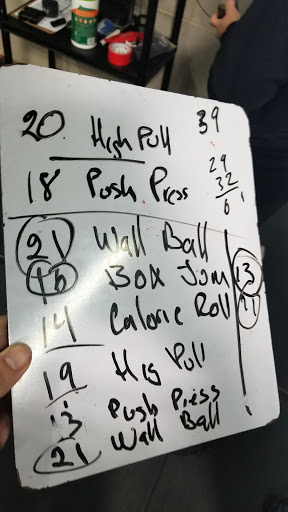 20 High Pull 39
29
18 Push Press 32
61
21 Wall Ball
15 Box Jum 13
14 Calorie Roll
19 Hig Pull
13 Push Press
21 Wall Ball